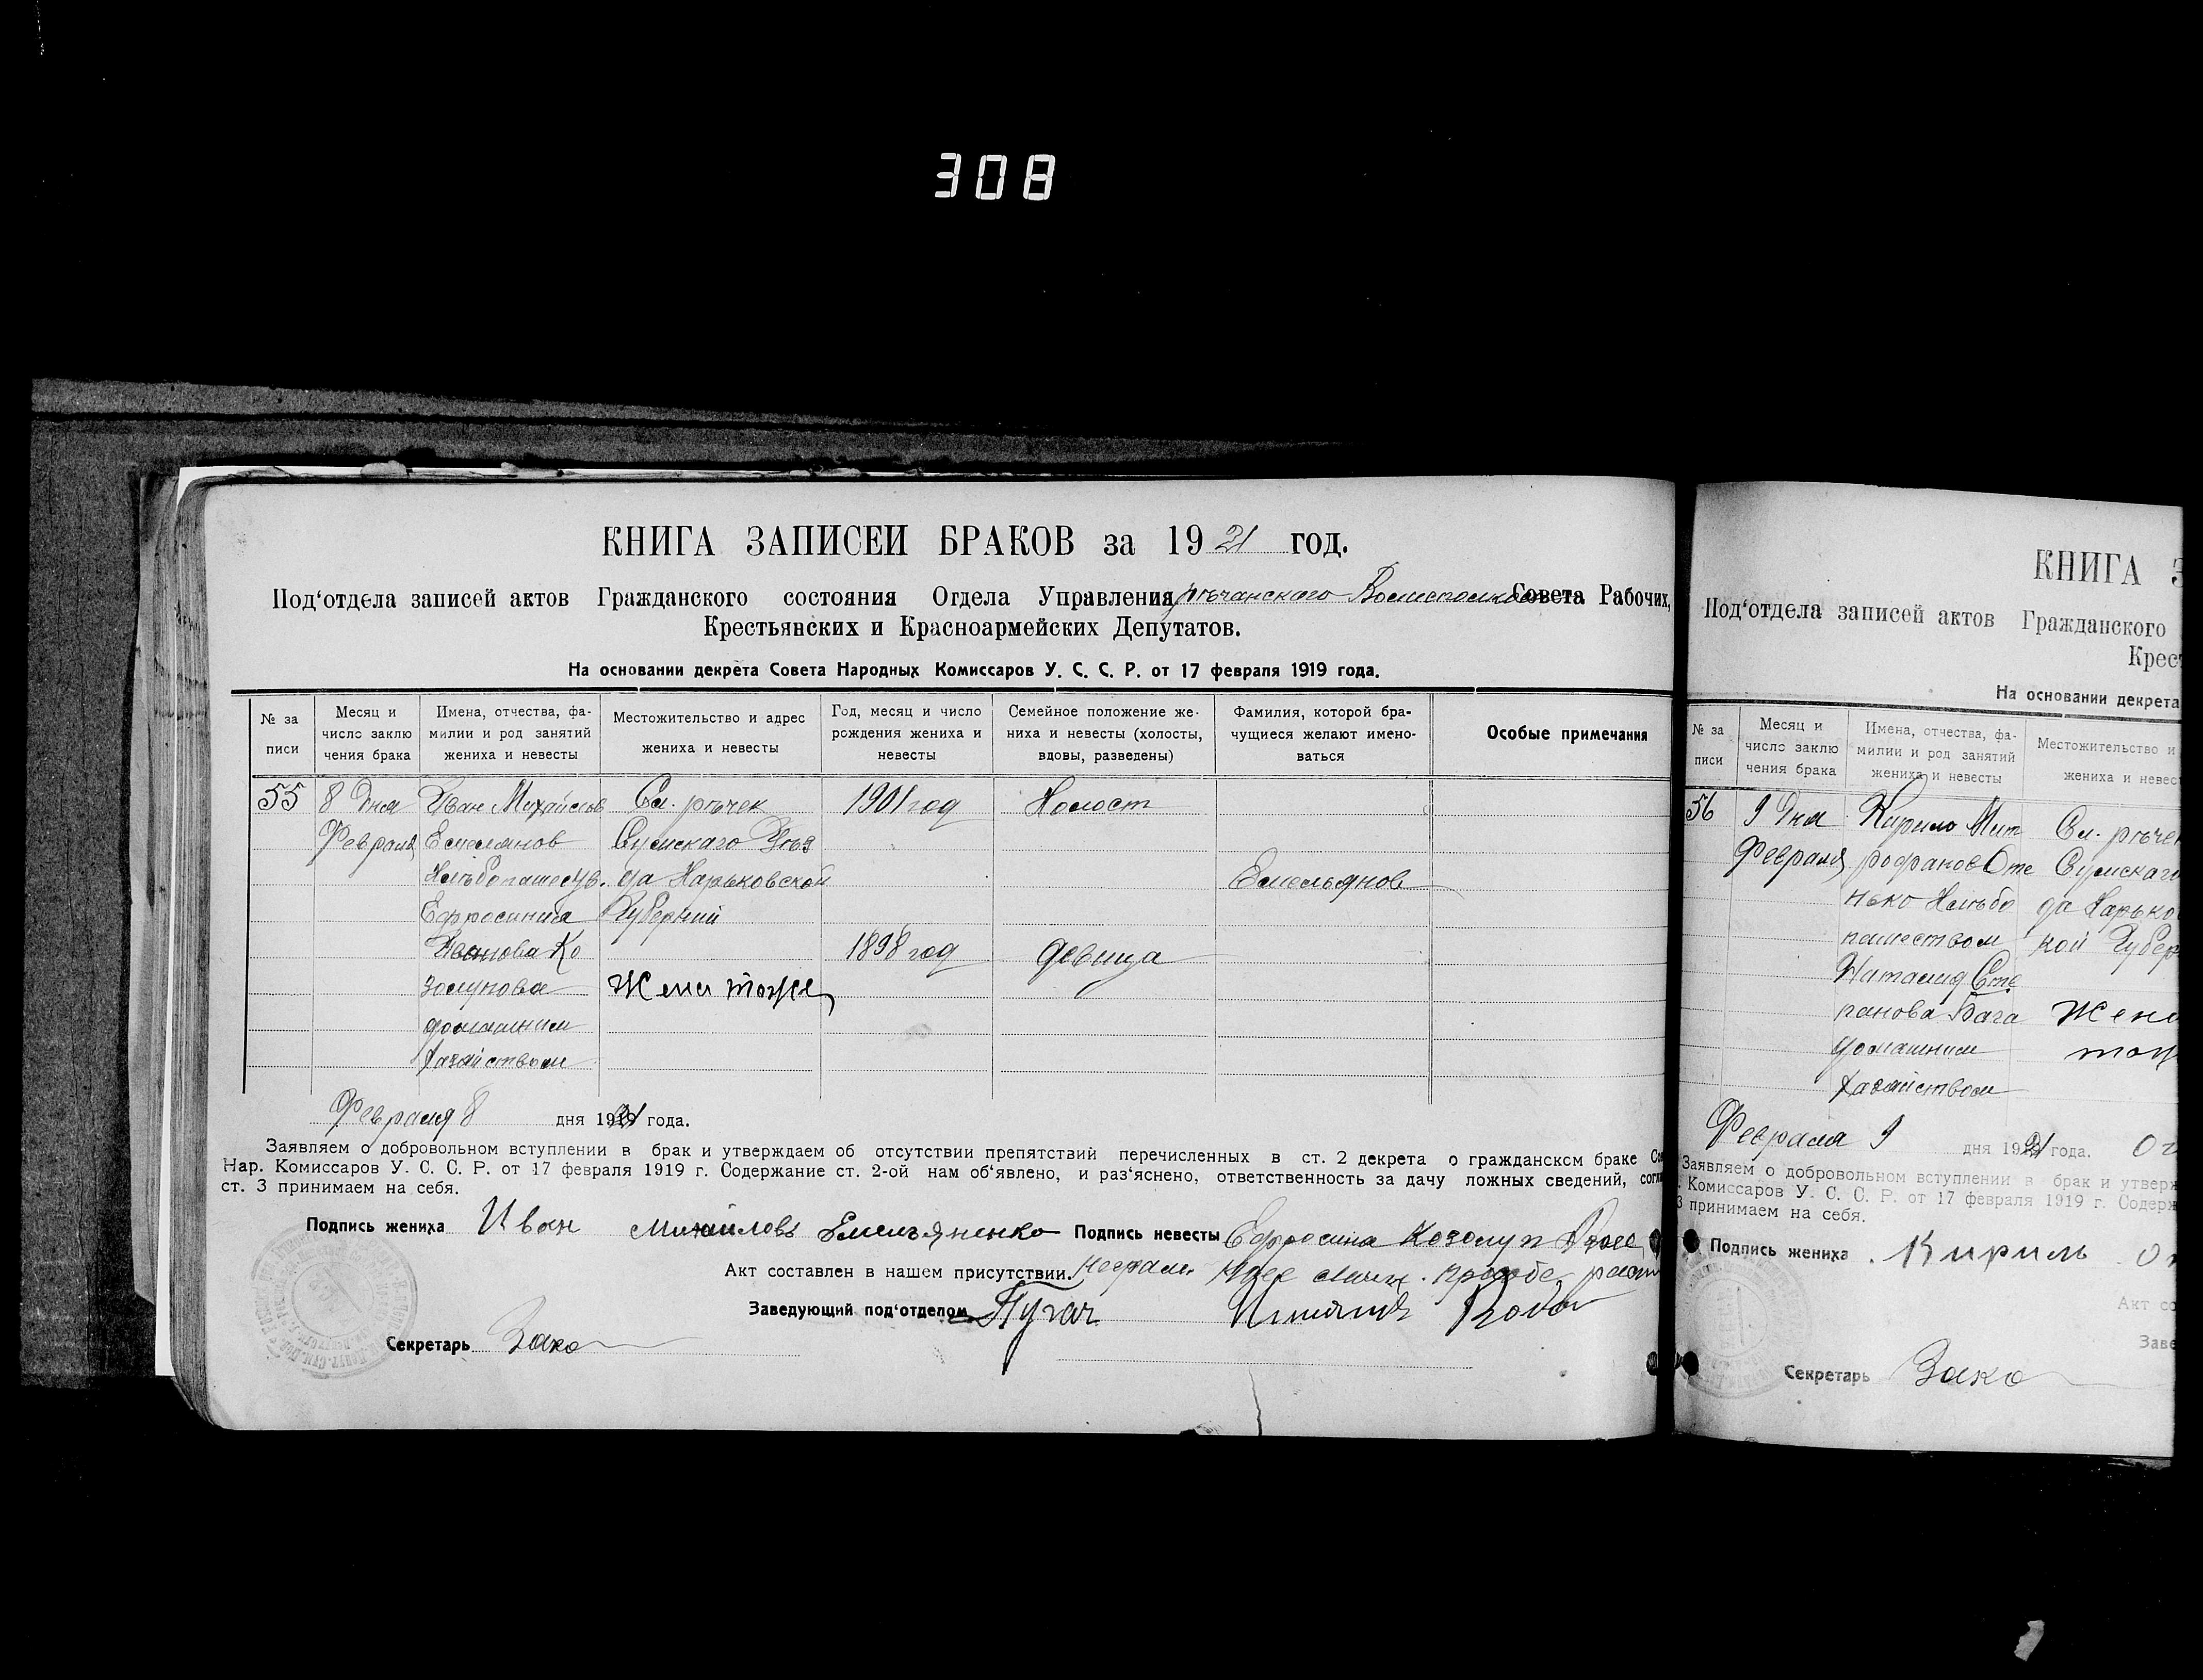 308
КНИГА ЗАПИСЕИ БРАКОВ за 1921 год.
Под'отдела записей актов Гражданского состояния Отдела Управления рѣчанскаго Совета Рабочих,
Крестьянских и Красноармейских Депутатов.
На основании декрета Совета Народных Комиссаров У. С. С. Р. от 17 февраля 1919 года.
№ за писи
Месяц и число заклю чения брака
Имена, отчества, фамилии и род занятий жениха и невесты
Местожительство и адрес жениха и невесты
Год, месяц и число рождения жениха и невесты
Семейное положение жениха и невесты (холосты, вдовы, разведены)
Фамилия, которой брачущиеся желают именоваться
Особые примечания
55 8 Дня Иван Михайлов Сл. рѣчек 1901 год Холост
Февраля Емелянов Сумскаго Уѣз
Хлѣбопашеств. да Харьковской Емельянов
Ефросиния Губерний
Иванова Ко 1898 год девица
золупова Жена тоже
домашним
хазайством
Февраля 8 дня 1921 года.
Заявляем о добровольном вступлении в брак и утверждаем об отсутствии препятствий перечисленных в ст. 2 декрета о гражданском браке Со
Нар. Комиссаров У. С. С. Р. от 17 февраля 1919 г. Содержание ст. 2-ой нам об'явлено, и раз'яснено, ответственность за дачу ложных сведений, согл
ст. 3 принимаем на себя.
Подпись жениха Иван Михайловъ Емельяненко Подпись невесты Ефросина Козолуп
Акт составлен в нашем присутствии. неграм.
Заведующий под'отделом Пугач
Секретарь Зако
КНИГА З
Под'отдела записей актов Гражданского
Крест
На основании декрета
№ за писи
Месяц и число заклю чения брака
Имена, отчества, фамилии и род занятий жениха и невесты
Местожительство и
жениха и невес
56 9 Дня Кирило Мит Сл. рѣчек
Февраля рофанов Оте Сумскаго
нько Хлѣбо да Харько
пашеством кой Губер
Наталия Сте
панова Бага Жена
домашним тоже
хазайством
Февраля 9 дня 1921 года.
Заявляем о добровольном вступлении в брак и утверж
. Комиссаров У. С. С. Р. от 17 февраля 1919 г. Содерж
3 принимаем на себя.
Подпись жениха Кирилъ
Акт со
Заве
Секретарь Зако